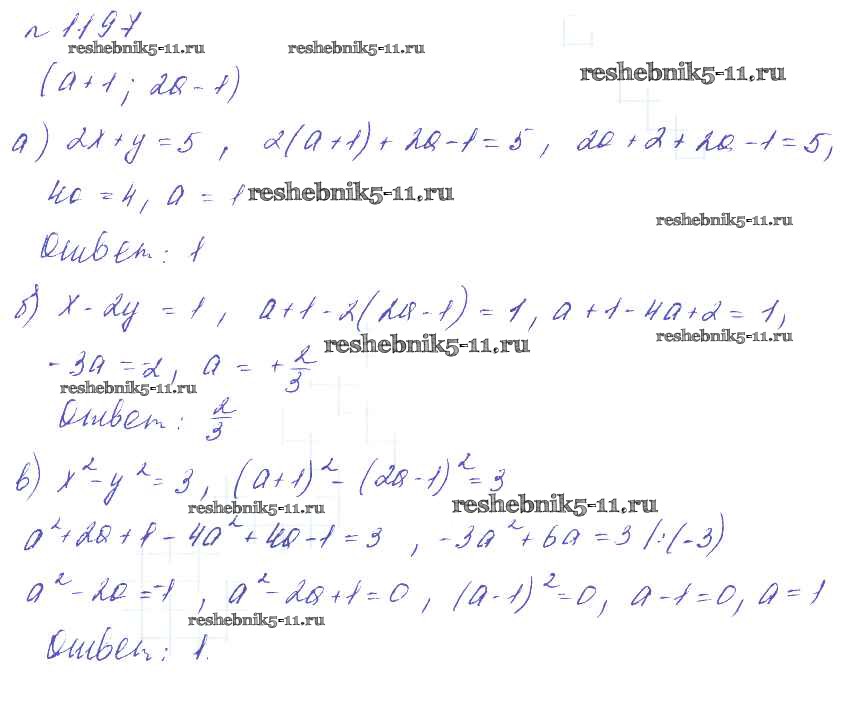 № 1197
reshebnik5-11.ru reshebnik5-11.ru
reshebnik5-11.ru
(a+1; 2a-1)
а) 2x+y=5, 2(a+1)+2a-1=5, 2a+2+2a-1=5,
4a=4, a=1 reshebnik5-11.ru
reshebnik5-11.ru
Ответ: 1
б) x-2y=1, a+1-2(2a-1)=1, a+1-4a+2=1,
reshebnik5-11.ru reshebnik5-11.ru
-3a=-2, a=+2/3
reshebnik5-11.ru
Ответ: 2/3
в) x²-y²=3, (a+1)²-(2a-1)²=3
reshebnik5-11.ru reshebnik5-11.ru
a²+2a+1-4a²+4a-1=3, -3a²+6a=3 /:(-3)
a²-2a=-1, a²-2a+1=0, (a-1)²=0, a-1=0, a=1
reshebnik5-11.ru
Ответ: 1.